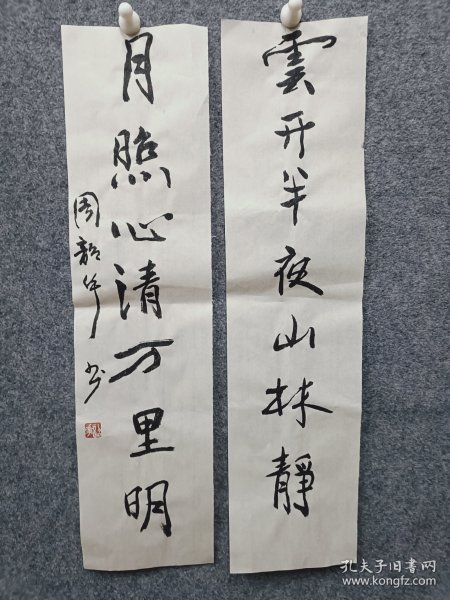 雲开半夜山林靜
月照心清万里明
周韶华书
孔夫子旧书网
www.kongfz.com